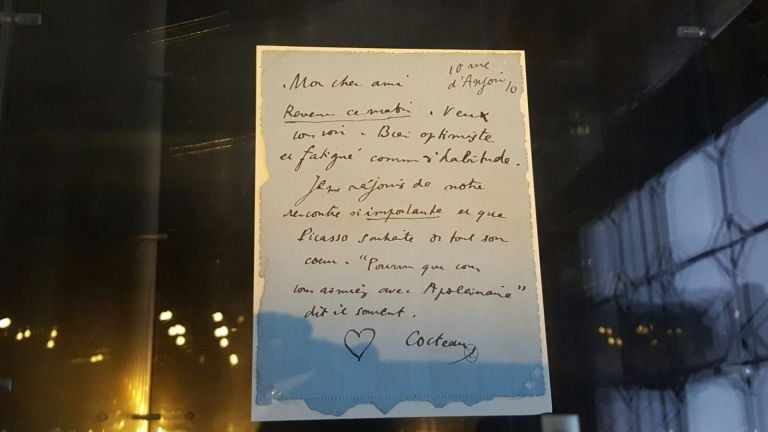 Mon cher ami
10 rue
d'Anjou 10
Revenu ce matin. Veux
vous voir. Bien optimiste
et fatigué comme d'habitude.
Je me réjouis de notre
rencontre si importante et que
Picasso souhaite de tout son
coeur. "Pourvu que vous
vous aimiez avec Apollinaire"
dit il souvent.
Cocteau